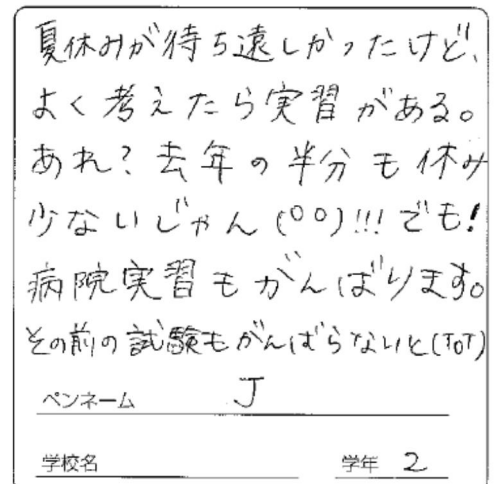 夏休みが待ち遠しかったけど、
よく考えたら実習がある。
あれ?去年の半分も休み
少ないじゃん(°°)!!!でも!
病院実習もがんばります。
その前の試験もがんばらないと(ToT)
ペンネーム J
学校名 学年 2